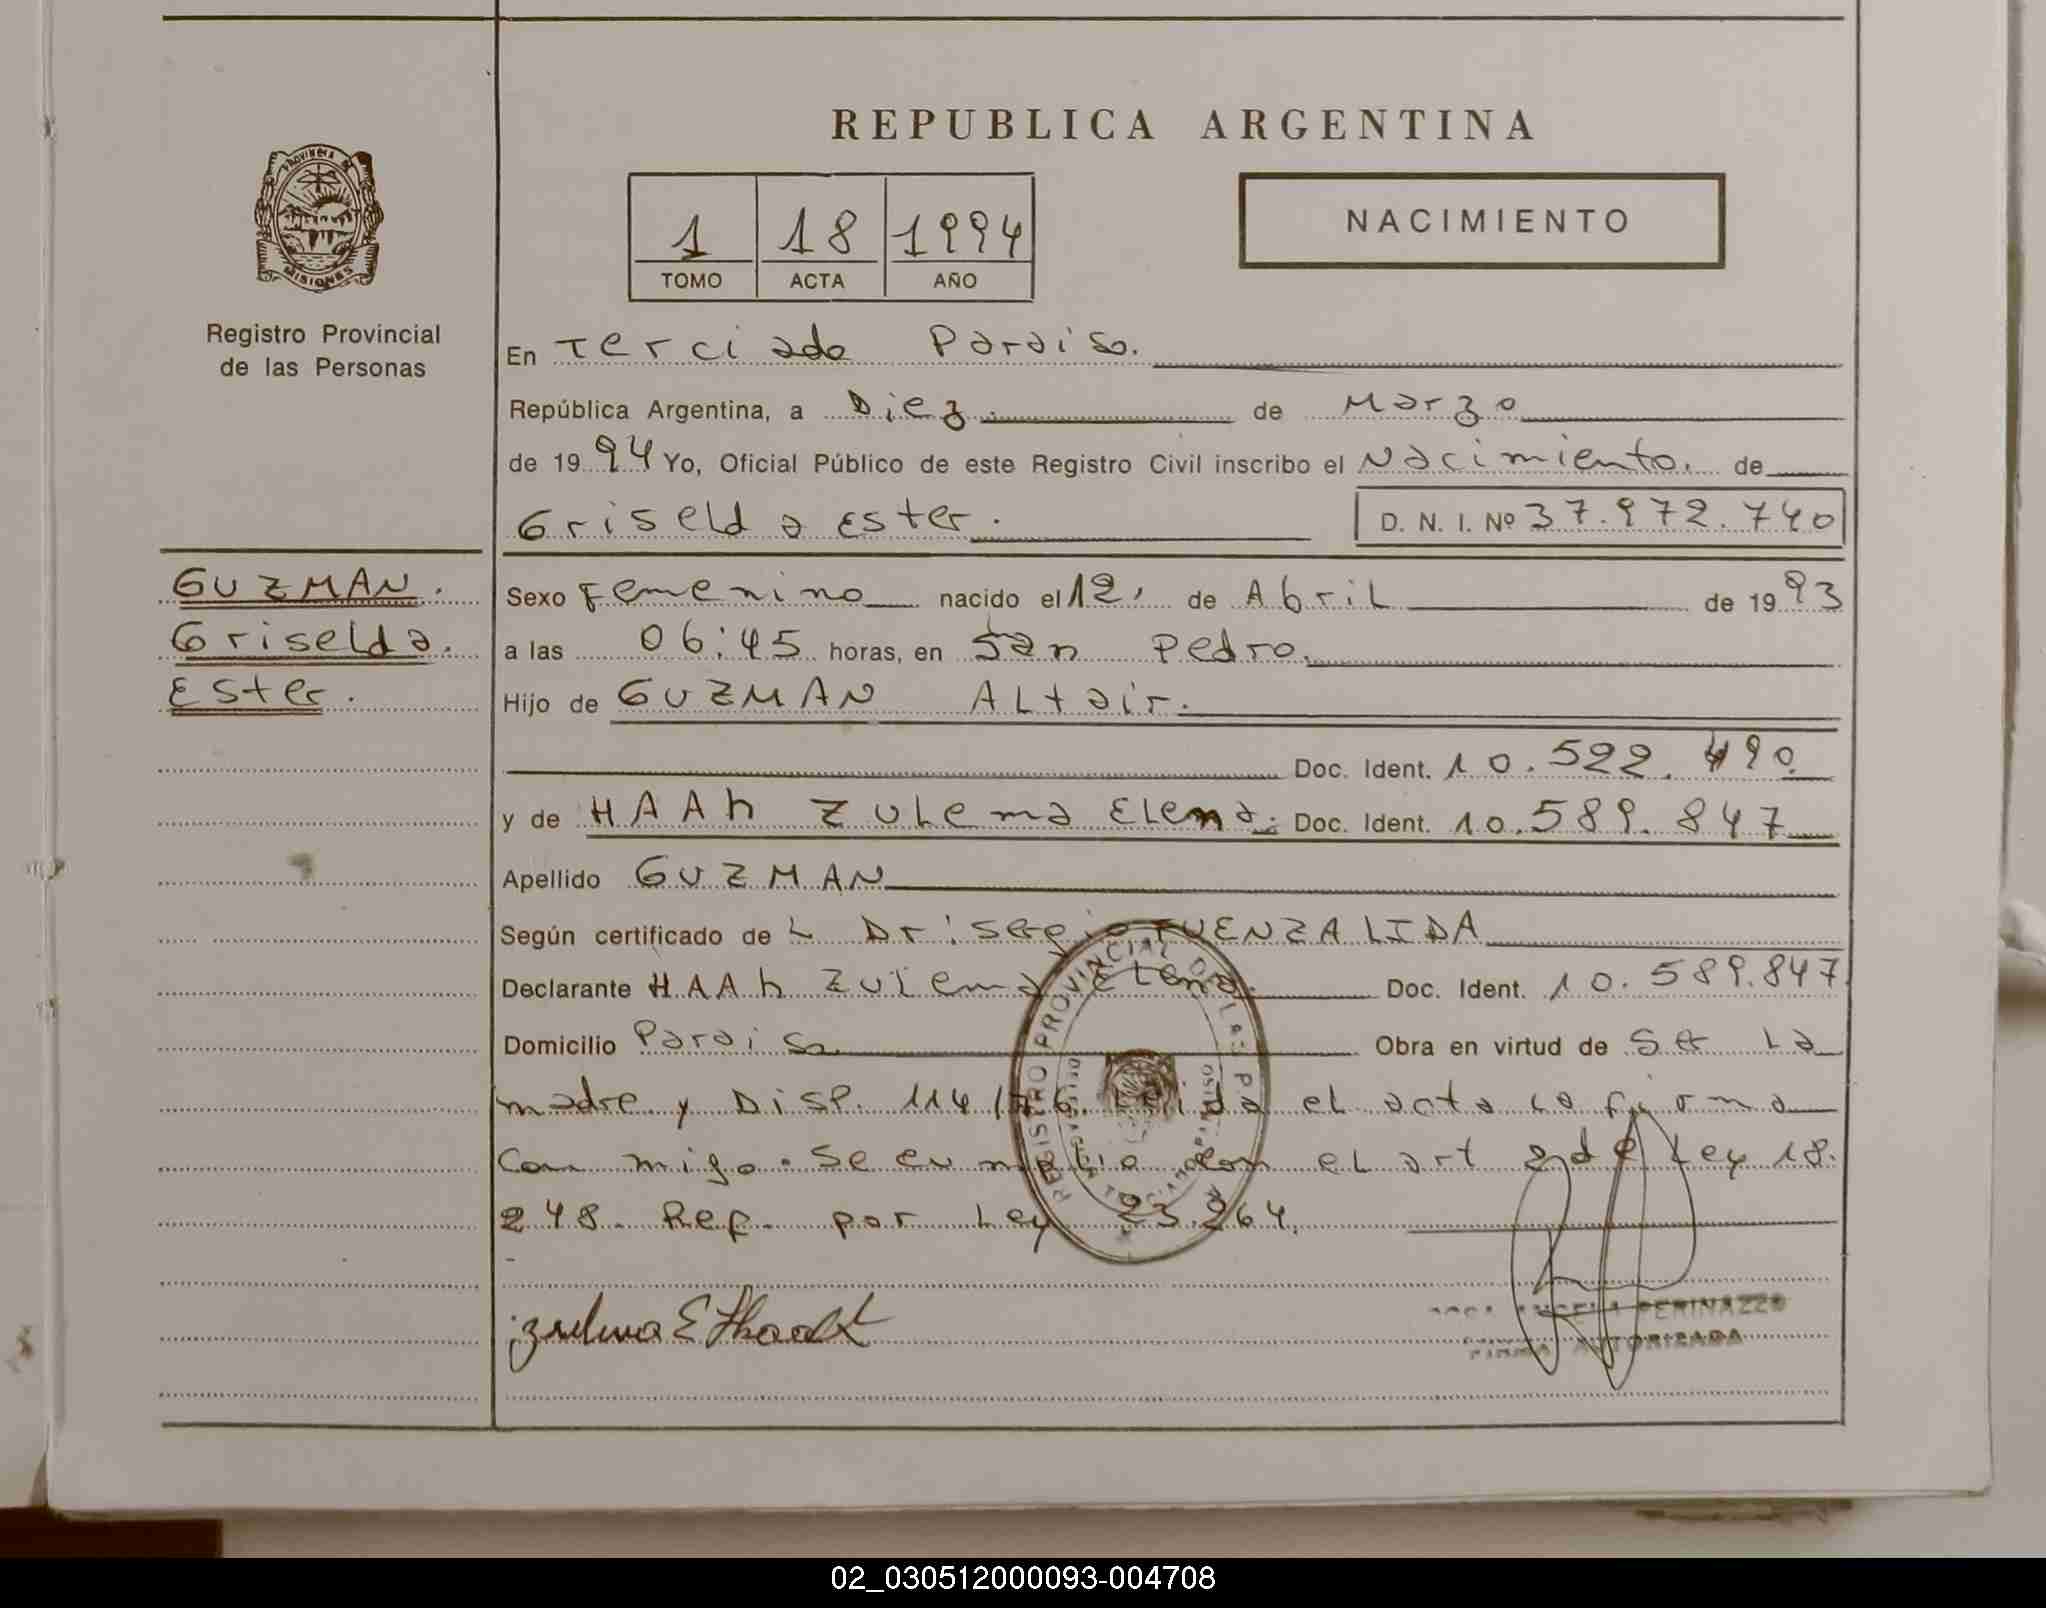 REPUBLICA ARGENTINA
PROVINCIA DE
MISIONES
1 18 1994
TOMO ACTA AÑO
NACIMIENTO
Registro Provincial
de las Personas
En Terciado Paraiso.
República Argentina, a Diez. de Marzo
de 1994 Yo, Oficial Público de este Registro Civil inscribo el Nacimiento. de
Griselda Ester. D. N. I. Nº 37.972.740
GUZMAN.
Griselda.
Ester.
Sexo Femenino nacido el 12. de Abril de 1993
a las 06:45 horas, en San Pedro.
Hijo de GUZMAN ALtair.
Doc. Ident. 10.522.490.
y de HAAh Zulema Elena. Doc. Ident. 10.589.847
Apellido GUZMAN
Según certificado de L Dr: Sergio FUENZALIDA
Declarante HAAh Zulema Elena. Doc. Ident. 10.589.847
Domicilio Paraiso Obra en virtud de Ser La
madre y Disp. 114/76. Leida el acta la firma
Con migo. Se cu mplio con el art 2 de Ley 18.
248. Ref. por Ley 23.264.
REGISTRO PROVINCIAL DE LAS P
Zulma E Haah
ANGELA PERINAZZO
FIRMA AUTORIZADA
02_030512000093-004708